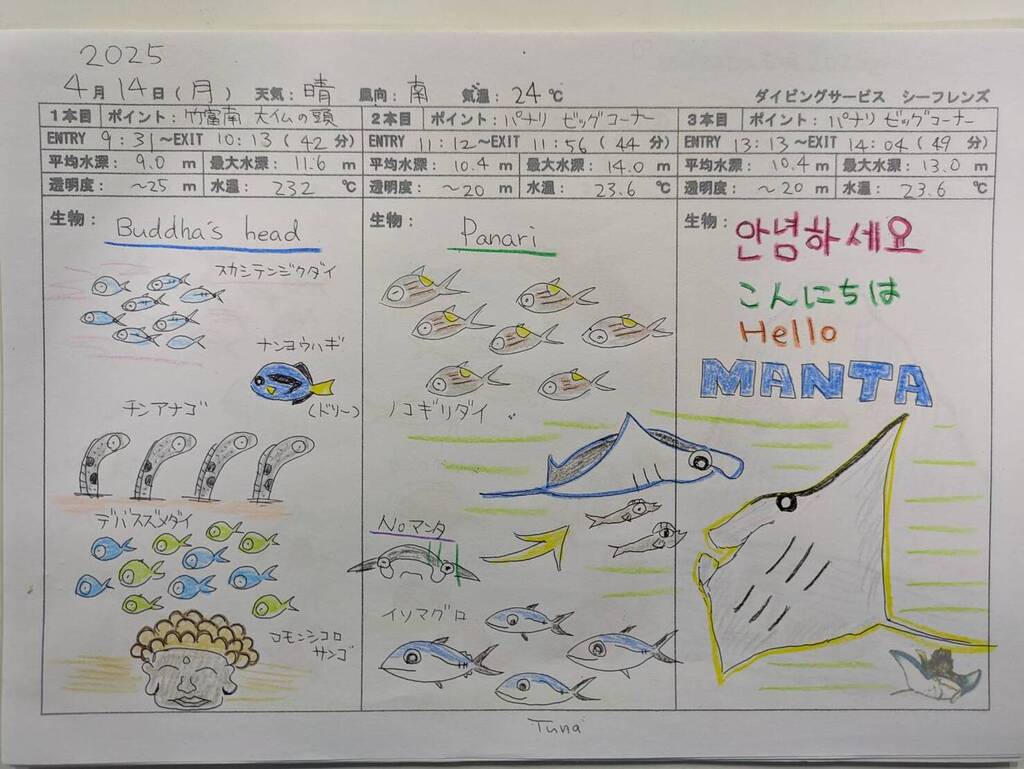 2025
4月14日(月) 天気:晴 風向:南 気温:24℃ ダイビングサービス シーフレンズ
1本目 ポイント:竹富南 大仏の頭
ENTRY 9:31~EXIT 10:13(42分)
平均水深: 9.0 m 最大水深: 11.6 m
透明度: ~25 m 水温: 23.2 ℃
生物: Buddha's head
スカシテンジクダイ
ナンヨウハギ
(ドリー)
チンアナゴ
デバスズメダイ
コモンシコロ
サンゴ
2本目 ポイント:パナリ ビッグコーナー
ENTRY 11:12~EXIT 11:56(44分)
平均水深: 10.4 m 最大水深: 14.0 m
透明度: ~20 m 水温: 23.6 ℃
生物: Panari
ノコギリダイ
Noマンタ
イソマグロ
Tuna
3本目 ポイント:パナリ ビッグコーナー
ENTRY 13:13~EXIT 14:04(49分)
平均水深: 10.4 m 最大水深: 13.0 m
透明度: ~20 m 水温: 23.6 ℃
生物: 안녕하세요
こんにちは
Hello
MANTA